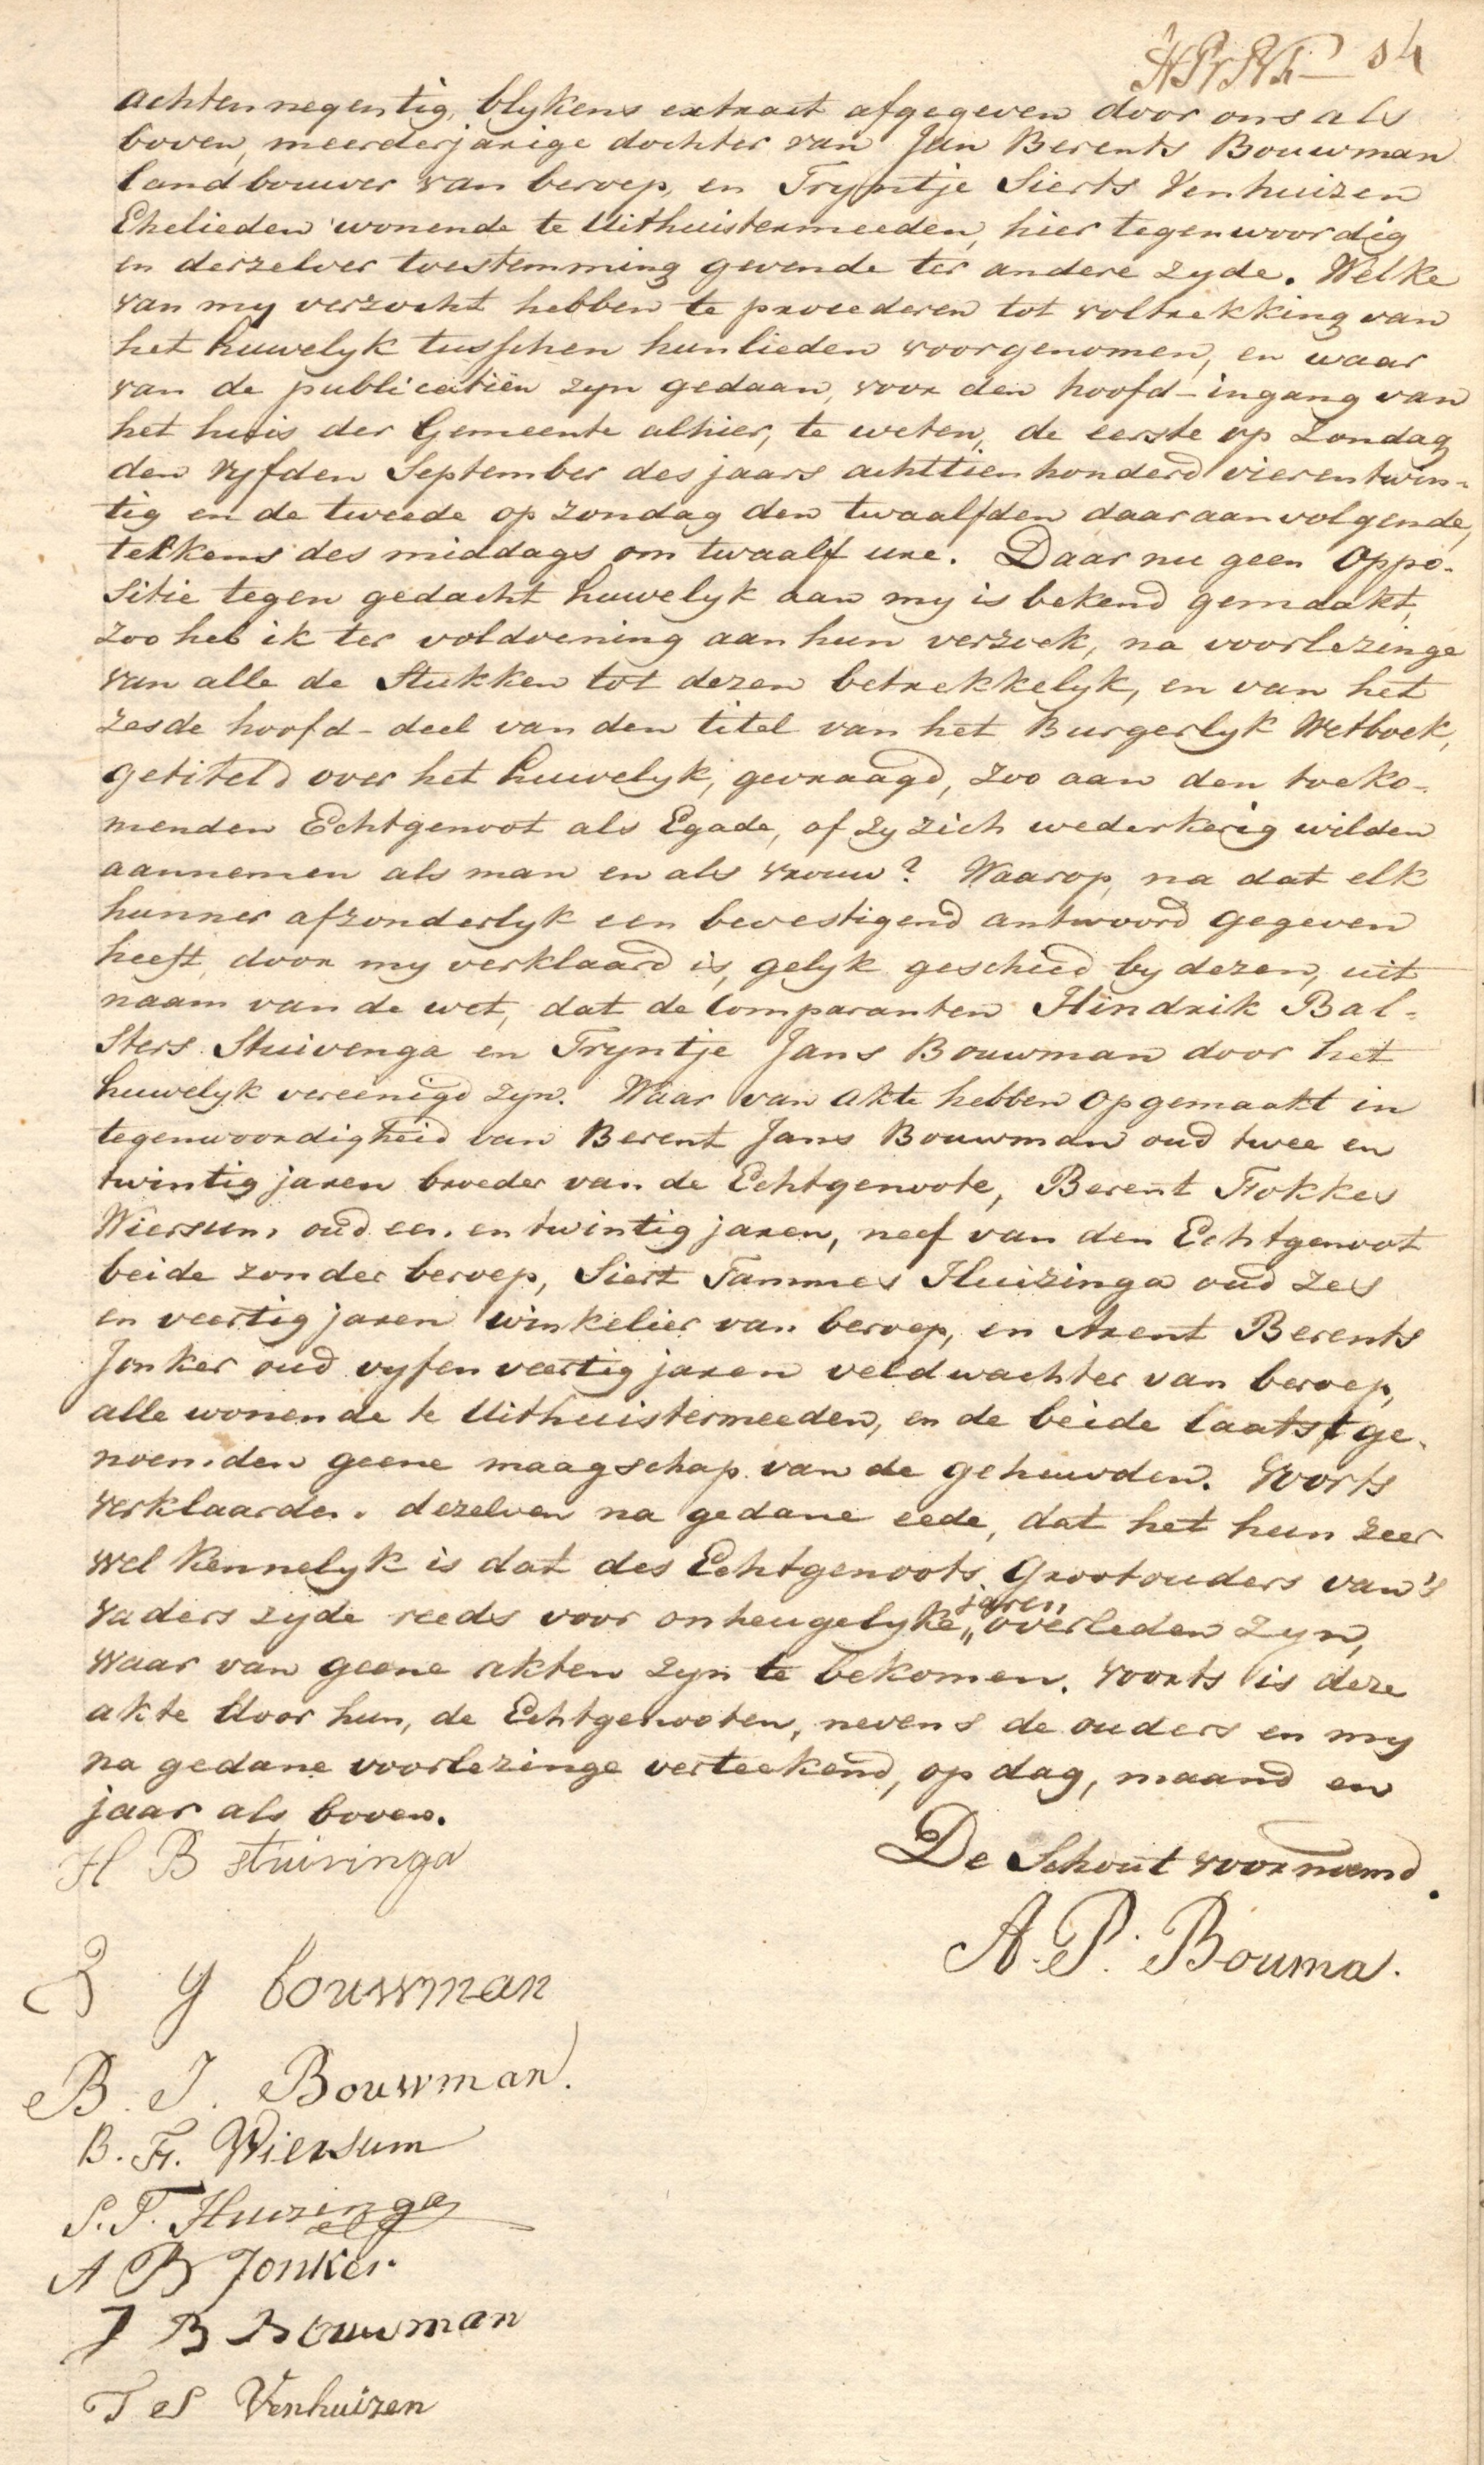 54
achtennegentig, blykens extract afgegeven door ons als
boven, meerderjarige dochter van Jan Berents Bouwman
landbouwer van beroep, en Tryntje Sierts Venhuizen
Ehelieden wonende te Uithuistermeeden, hier tegenwoordig
en derzelver toestemming gevende ter andere zyde. Welke
van my verzocht hebben te procederen tot voltrekking van
het huwelyk tusschen hunlieden voorgenomen, en waar
van de publicatiën zyn gedaan, voor den hoofd-ingang van
het huis der Gemeente alhier, te weten, de eerste op Zondag
den vyfden September des jaars achttienhonderd vierentwin-
tig en de tweede op zondag den twaalfden daaraanvolgende,
telkens des middags om twaalf ure. Daar nu geen Oppo-
sitie tegen gedacht huwelyk aan my is bekend gemaakt,
zoo heb ik ter voldoening aan hun verzoek, na voorlezinge
van alle de Stukken tot dezen betrekkelyk, en van het
zesde hoofd-deel van den titel van het Burgerlyk Wetboek,
getiteld over het huwelyk, gevraagd, zoo aan den toeko-
menden Echtgenoot als Egade, of zy zich wederkerig wilden
aannemen als man en als vrouw? Waarop, na dat elk
hunner afzonderlyk een bevestigend antwoord gegeven
heeft, door my verklaard is, gelyk geschied by dezen, uit
naam van de wet, dat de Comparanten Hindrik Bal-
sters Stuivenga en Tryntje Jans Bouwman door het
huwelyk vereenigd zyn. Waar van akte hebben opgemaakt in
tegenwoordigheid van Berent Jans Bouwman oud twee en
twintig jaren broeder van de Echtgenoote, Berent Fokkes
Wiersum oud een en twintig jaren, neef van den Echtgenoot
beide zonder beroep, Siert Tammes Huizinga oud zes
en veertig jaren winkelier van beroep, en Arent Berents
Jonker oud vyfenveertig jaren veldwachter van beroep,
alle wonende te Uithuistermeeden, en de beide laatstge-
noemden geene maagschap van de gehuwden. Voorts
verklaarden dezelven na gedane eede, dat het hun zeer
wel kennelyk is dat des Echtgenoots Grootouders van's
vaders zyde reeds voor onheugelyke „jaren overleden zyn,
waar van geene akten zyn te bekomen. Voorts is deze
akte door hun, de Echtgenooten, nevens de ouders en my
na gedane voorlezinge verteekend, op dag, maand en
jaar als boven.
De Schout voornoemd.
H B Stuivinga
A. P. Bouma.
bouwman
B. J. Bouwman.
B. F. Wiersum
S. T. Huizinga
A B Jonker
J B Bouwman
T S Venhuizen